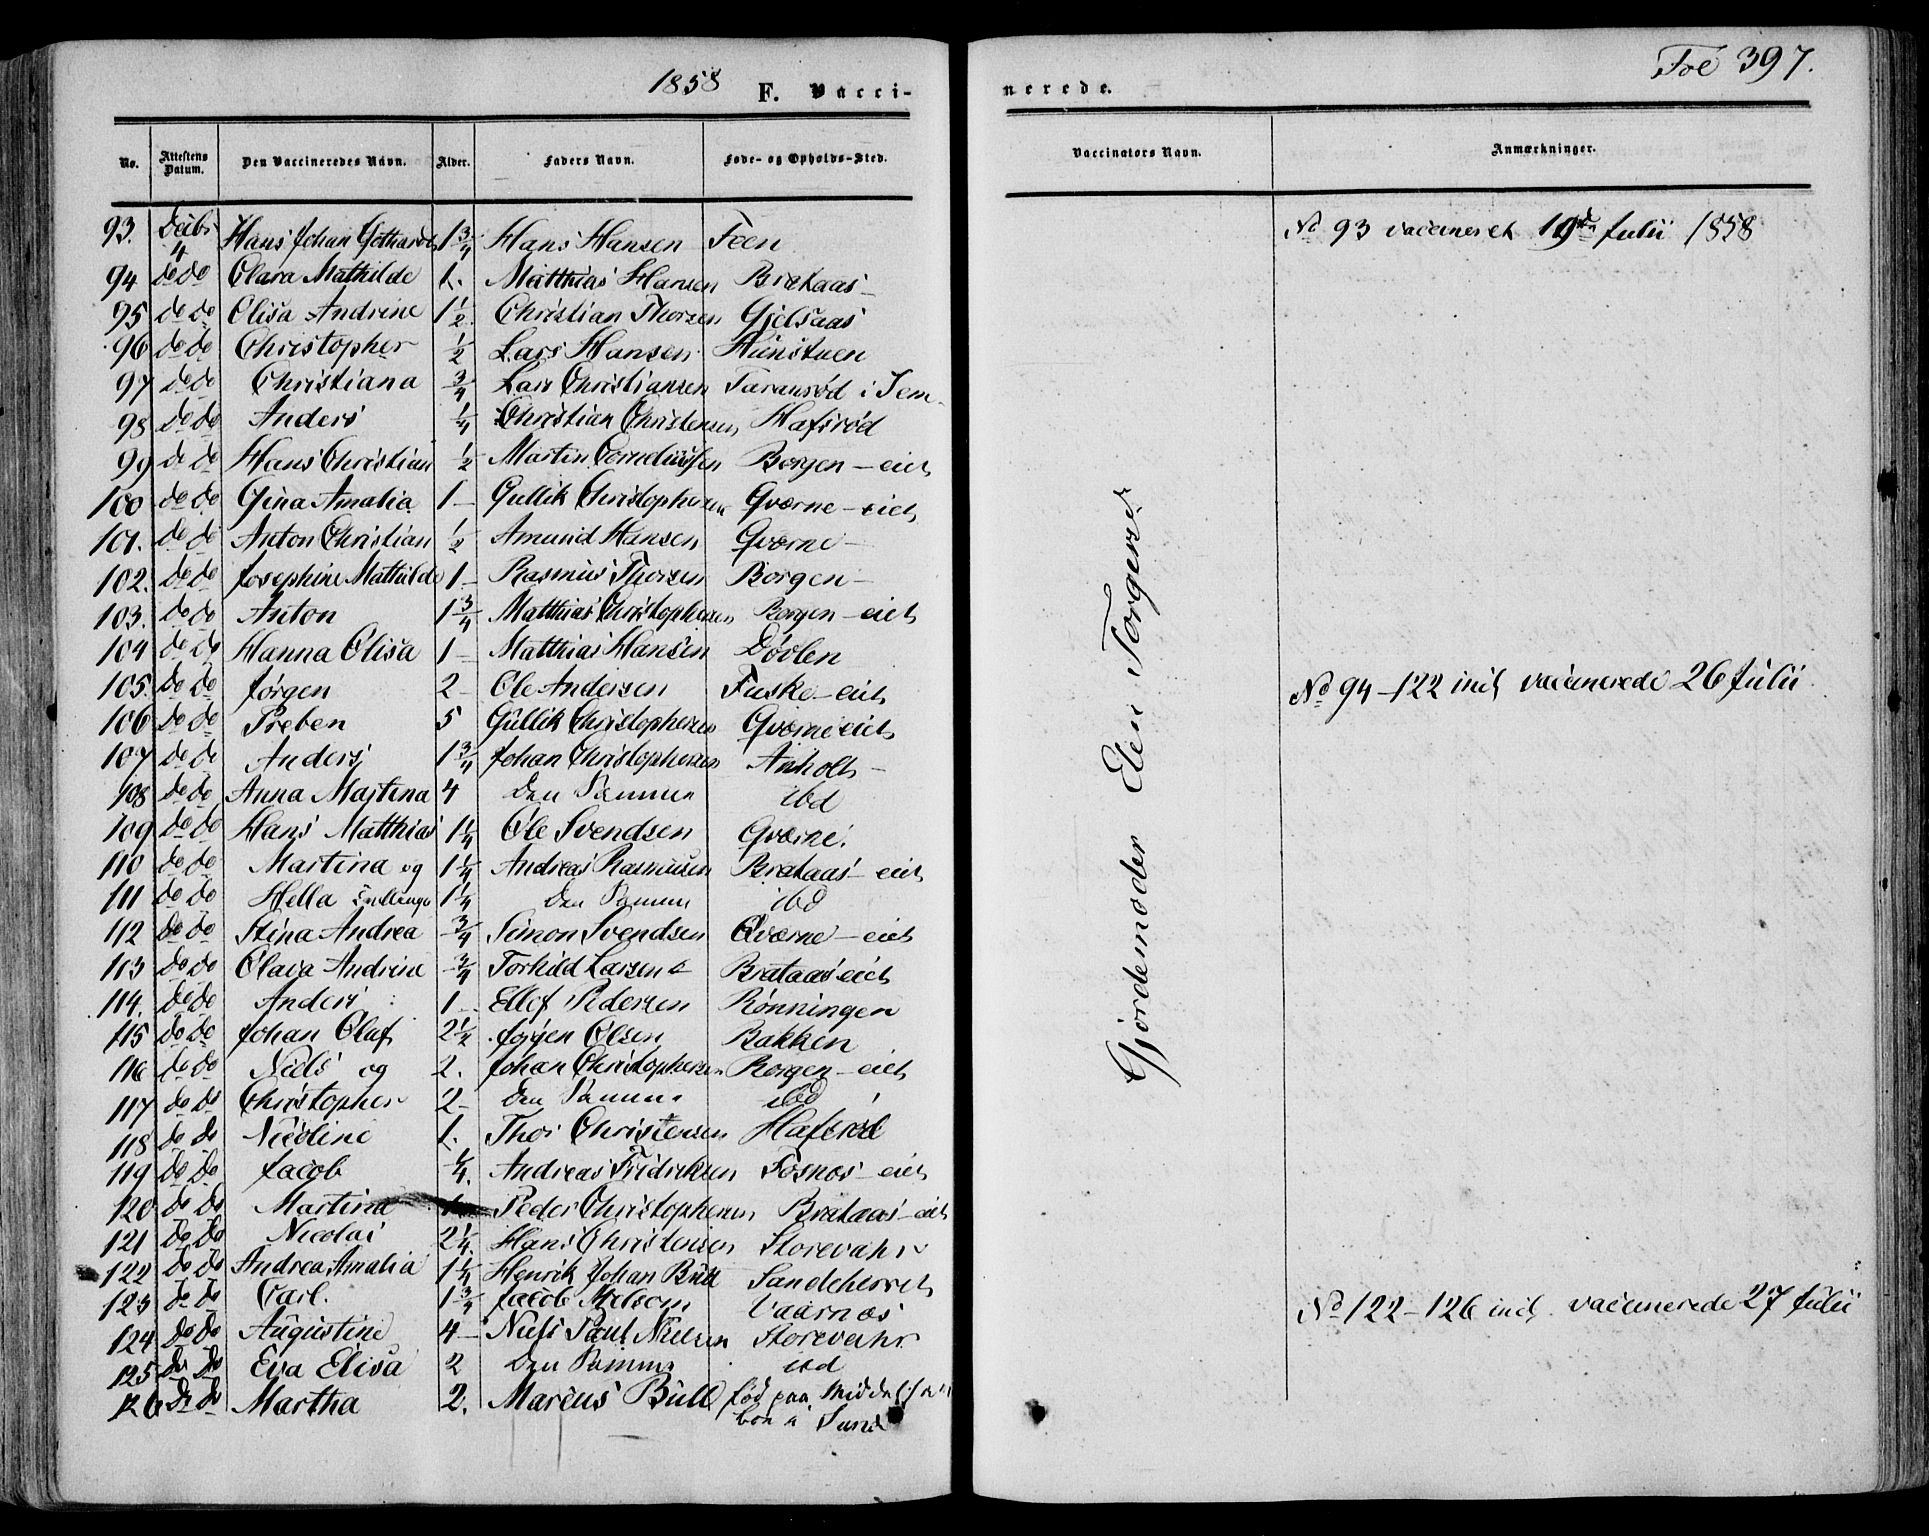 1858 F. Vacci-
nerede.
Fol 397.
No. Attestens Datum. Den Vaccineredes Navn. Alder. Faders Navn. Føde- og Opholds-Sted.
Vaccinators Navn. Anmærkninger.
93. Decbr 4 Hans Johan Gothardt 1 3/4 Hans Hansen Feen
94 do do Clara Mathilde 1. Matthias Hansen Brataas
95 do do Elisa Andrine 1 1/2 Christian Thorsen Gjelsaas
96 do do Christopher 1/2 Lars Hansen Hunstuen
97 do do Christiana 3/4 Lars Christiansen Taranrød i Sem
98 do do Anders 1/4 Christian Christensen Hafsrød
99 do do Hans Christian 1/2 Martin Corneliussen Borgen-eiet
100 do do Gina Amalia 1- Gullik Christophersen Qværne-eiet
101. do do Anton Christian 1/2 Amund Hansen Qværne-
102. do do Josephine Mathilde 1- Rasmus Thorsen Borgen-
103. do do Anton 1 3/4 Matthias Christophersen Borgen-eiet
104 do do Hanna Elisa 1- Matthias Hansen Døvlen
105. do do Jørgen 2- Ole Andersen Fuske-eiet
106 do do Preben 5 Gullik Christophersen Qværne eiet
107 do do Anders 1 3/4 Johan Christophersen Anholt-
108 do do Anna Martina 4 den Samme ibd
109 do do Hans Matthias 1 1/4 Ole Svendsen Qværne.
110 do do Martina og 1 1/4 Andreas Rasmusen Brataas-eiet
111 do do Hella 1 1/4 den Samme ibd
112 do do Stina Andrea 3/4 Simon Svendsen Qværne-eiet
113 do do Olava Andrine 3/4 Torkild Larsen Brataas eiet
114. do do Anders 1- Ellef Pedersen Rønningen
115 do do Johan Olaf 2 1/2 Jørgen Olsen Bakken
116 do do Niels og 2. Johan Christophersen Borgen-eiet
117 do do Christopher 2- den Samme ibd
118 do do Nicoline 1. Thor Christensen Hafsrød
119 do do Jacob 1/4. Andreas Fridriksen Fosnos-eiet
120 do do Martina Peder Christophersen Brataas-eiet
121 do do Nicolai 2 1/4. Hans Christensen Storevahr
122 do do Andrea Amalia 1 1/4 Henrik Johan Bull Sandeherret
123 do do Carl. 1 3/4 Jacob Melsom Vaarnæs
124 do do Augustine 4- Niels Paul Nielsen Storevahr
125 do do Eva Elisa 2 den Samme ibd
126 do do Martha 2. Marcus Bull fød paa
Sund
Gjordemoder Elen Torgersd
No 93 vaccineret 19de Julii 1858
No 94-122 incl vaccinerede 26 Julii
No 122-126 incl. vaccinerede 27 Julii